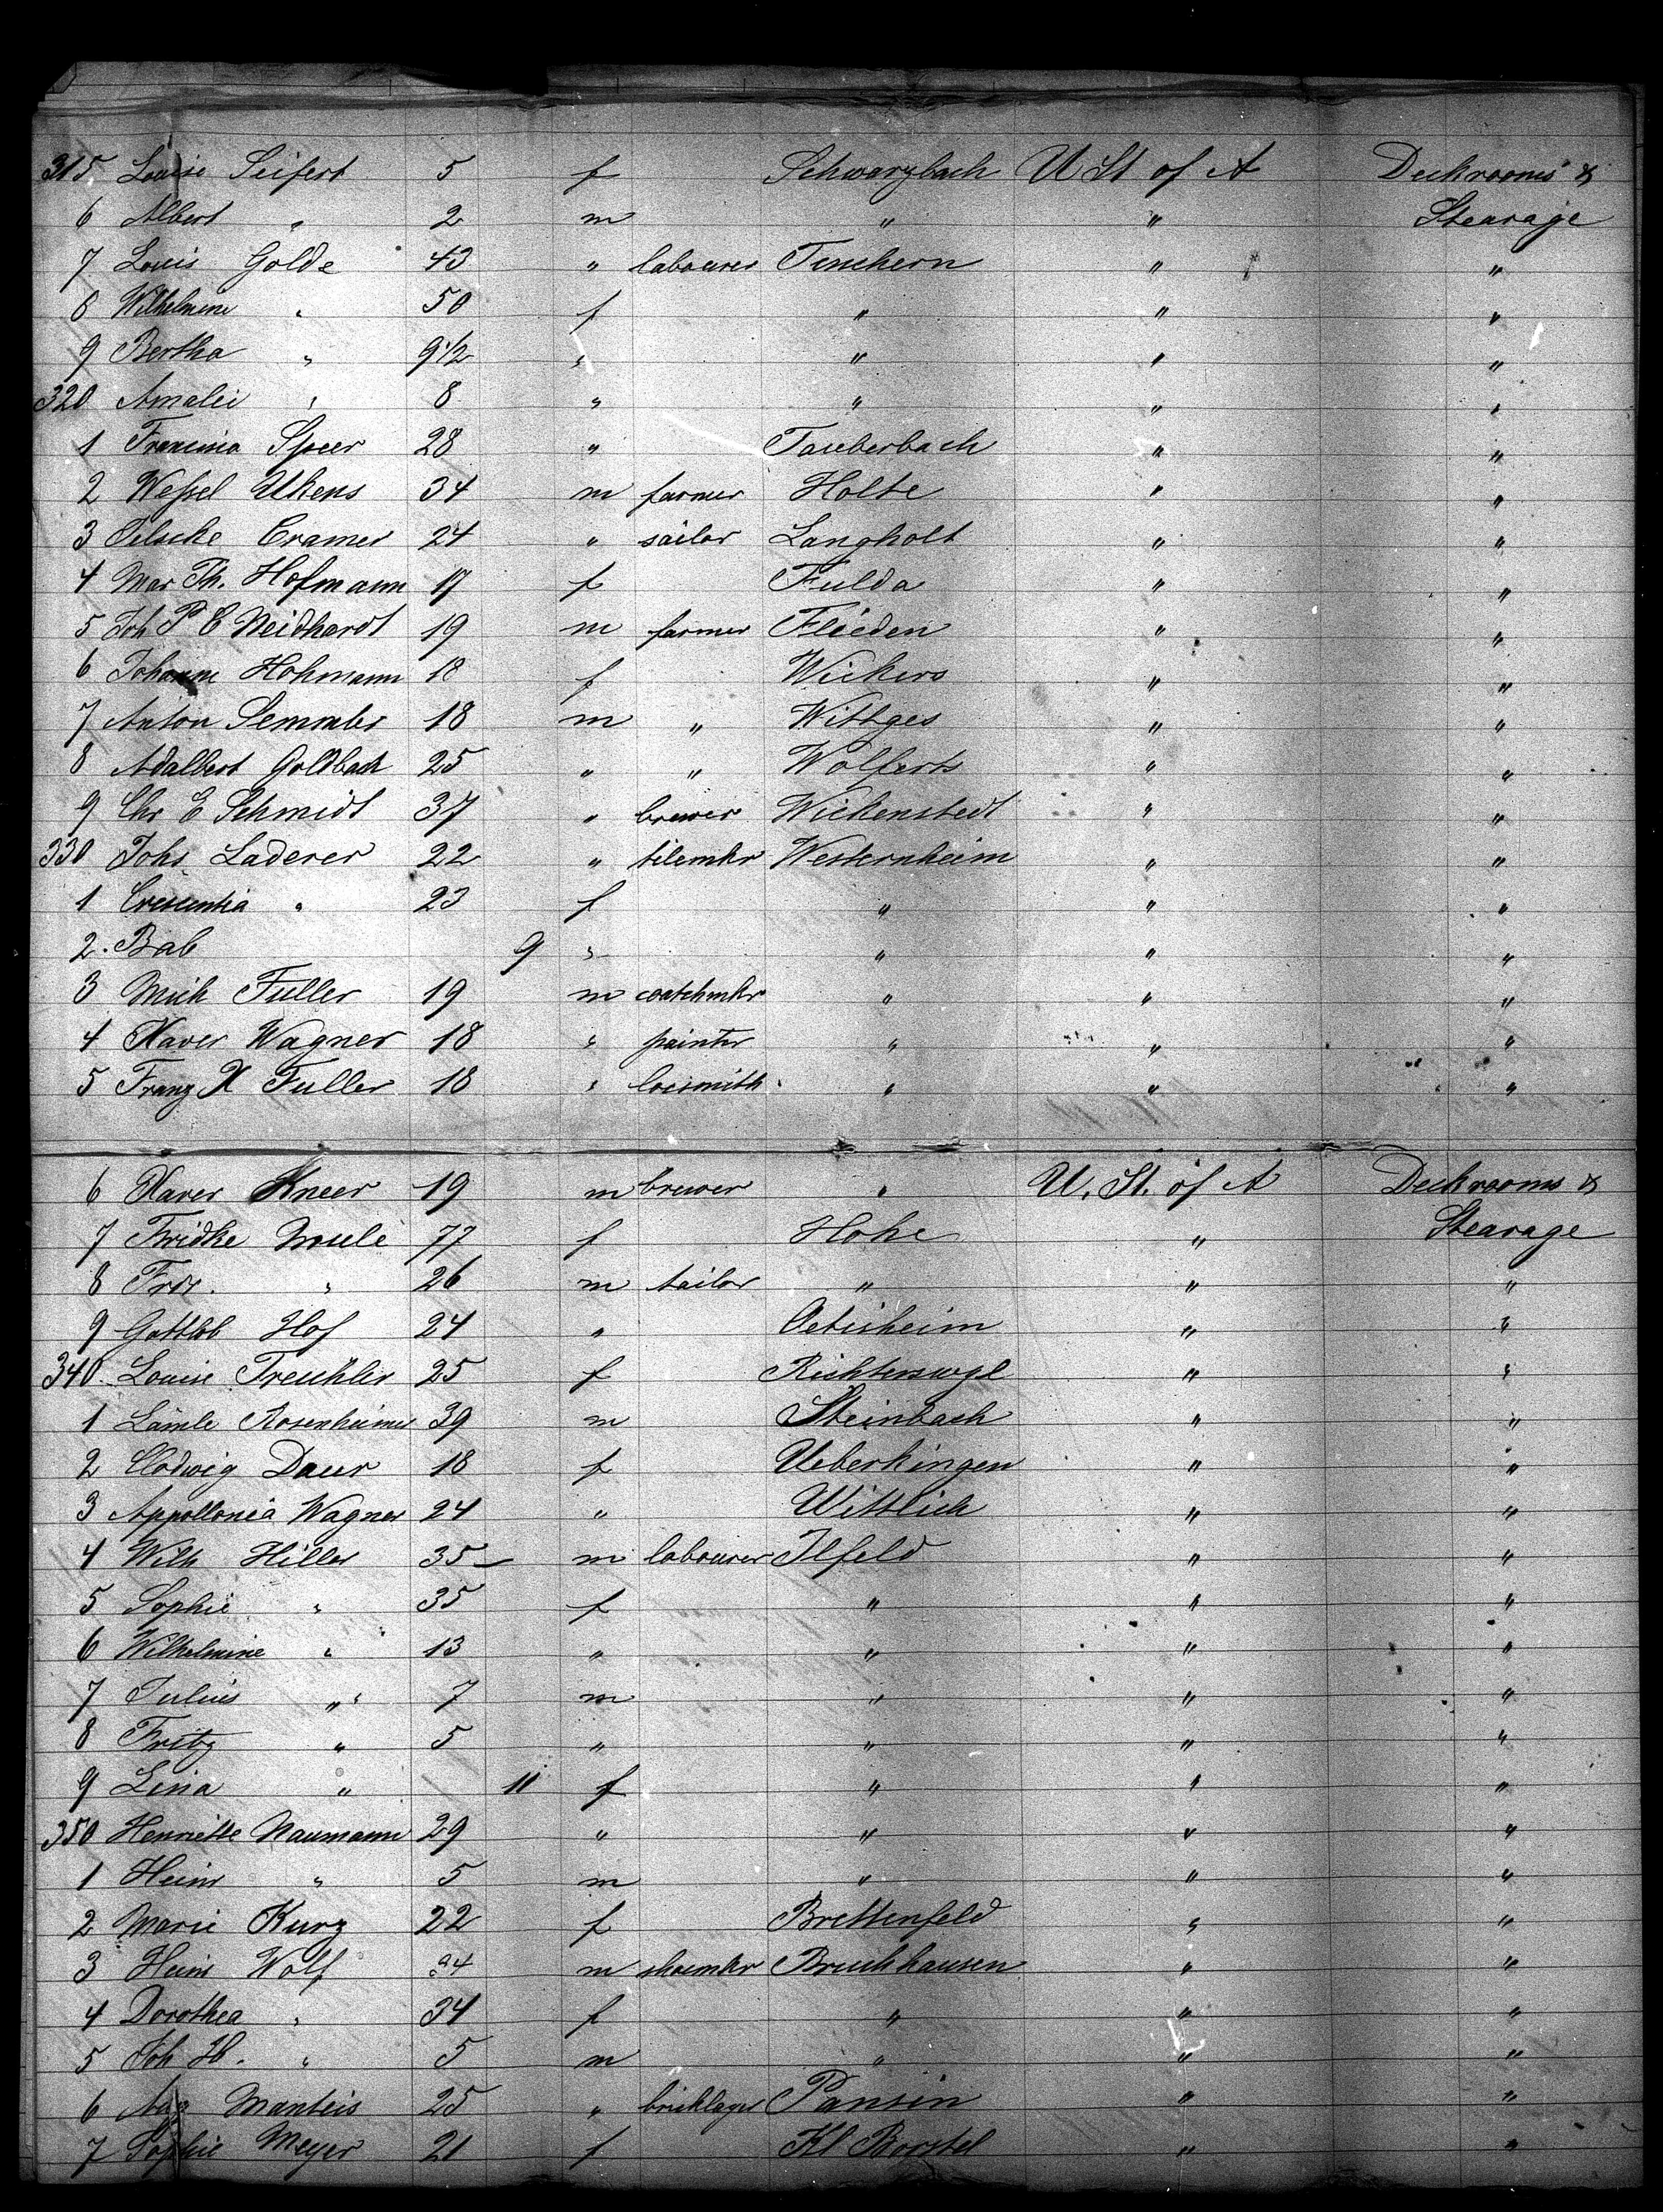 315 Louise Seifert 5 f Schwarzbach U St of A Deckrooms &
6 Albert " 2 m " " Stearage
7 Louis Golde 43 " labourer Teuchern " "
8 Wilhelmine " 50 f " " "
9 Bertha " 9 1/2 " " " "
320 Amalie " 8 " " " "
1 Francisca Speer 28 " Tauberbach " "
2 Wessel Ukens 34 m farmer Holte " "
3 Cramer 24 " sailor Langholt " "
4 Mar Th. Hofmann 17 f Fulda " "
5 Joh P E Neidhardt 19 m farmer Flieden " "
6 Johanne Hohmann 18 f Wickers " "
7 Anton Semmler 18 m " Wittges " "
8 Adalbert Goldbach 25 " " Wolferts " "
9 Chr E Schmidt 37 " brewer Wickenstedt " "
330 Johs Laderer 22 " tilemkr Westernheim " "
1 Crescentia " 23 f " " "
2 Bab 9 " " " "
3 Mich Fuller 19 m watchmkr " " "
4 Xaver Wagner 18 " painter " " "
5 Franz X Fuller 18 " locsmith " " "
6 Xaver Kneer 19 m brewer " U. St. of A Deckrooms &
7 Fridke 77 f Hohe " Stearage
8 Frdr. " 26 m tailor " " "
9 Gottlob Hof 24 " Oetisheim " "
340 Louise Treichler 25 f Richterswyl " "
1 Lämle Rosenheimer 39 m Steinbach " "
2 Hedwig Daur 18 f Ueberkingen " "
3 Appollonia Wagner 24 " Wittlich " "
4 Wilh Hiller 35 m labourer Ilfeld " "
5 Sophie " 35 f " " "
6 Wilhelmine " 13 " " " "
7 Julius " 7 m " " "
8 Fritz " 5 " " " "
9 Lina " 11 f " " "
350 Henriette Naumann 29 " " " "
1 Heinr " 5 m " " "
2 Marie Kurz 22 f Brettenfeld " "
3 Heinr Wolf 34 m shoemkr Bruchhausen " "
4 Dorothea " 34 f " " "
5 Joh H. " 5 m " " "
6 Aug Manteis 25 " bricklayer Pansin " "
7 Sophie Meyer 21 f Kl Borstel " "